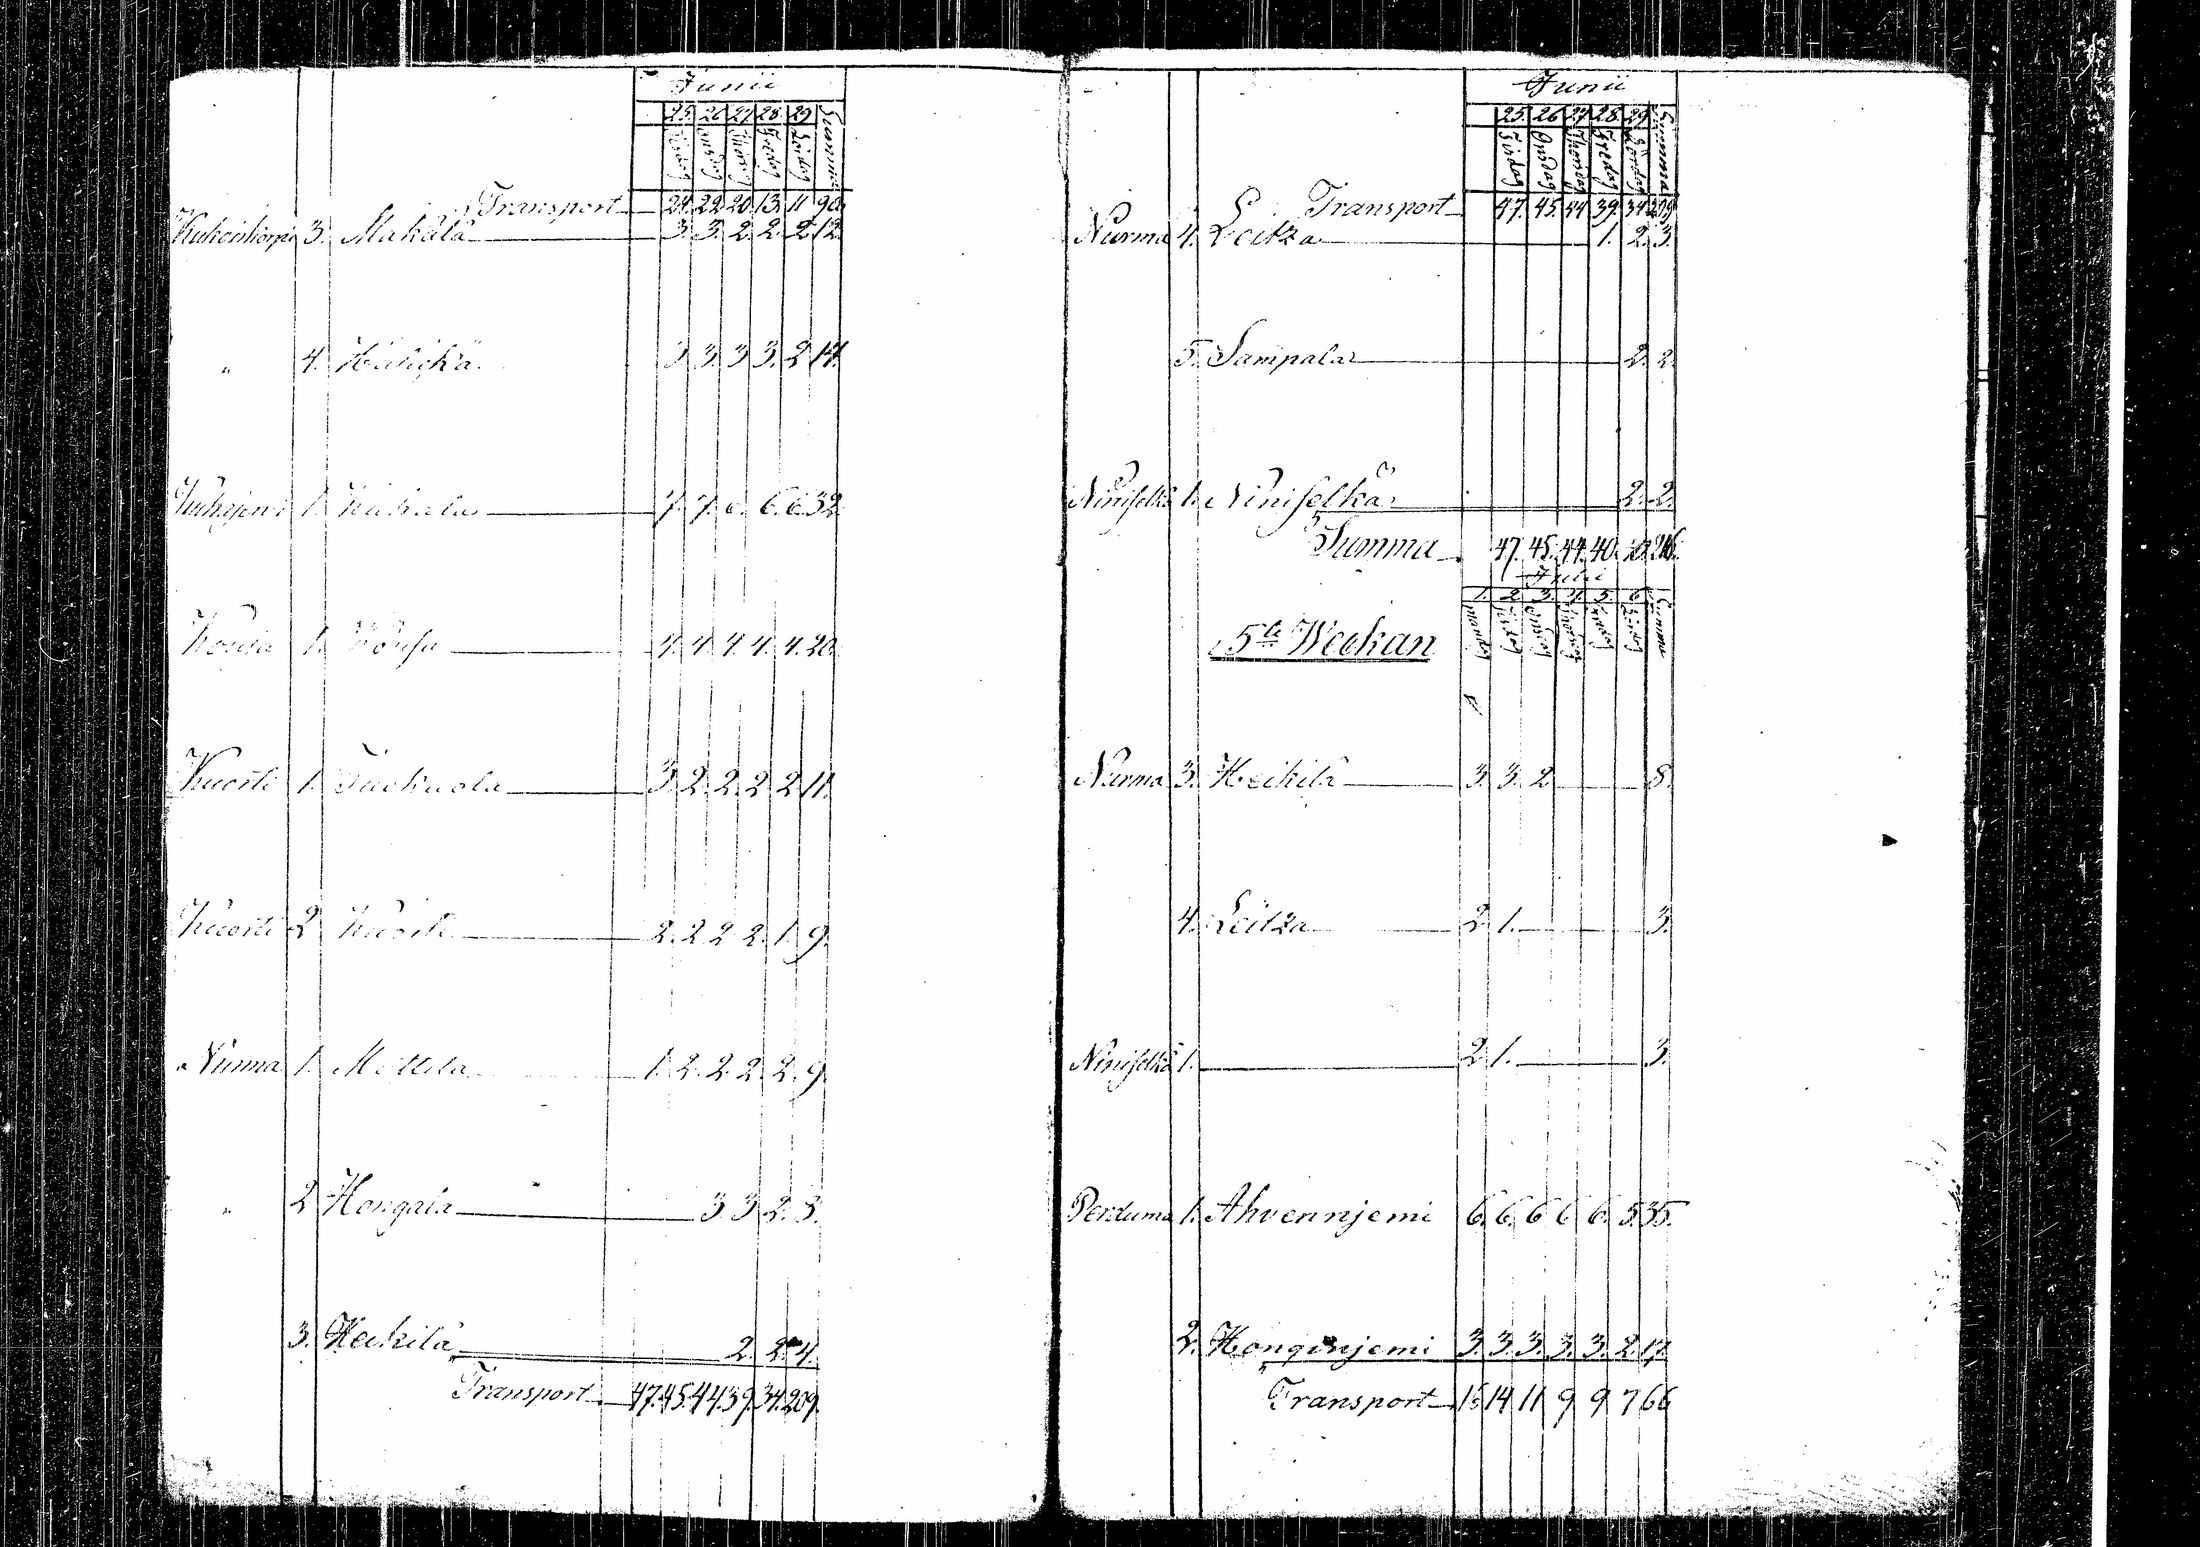 Junii
25. 26 27 28. 29
Tisdag Onsdag Thorsdag Fredag Lördag Summa
Transport 24. 22. 20. 13. 11 90.
3. Makälä 3. 3. 2. 2. 2. 12.
" 4. 3. 3. 3. 3. 2. 14.
1. 7. 7. 6. 6. 32.
Kousa 1. Kousa 4. 4. 4. 4. 4. 20.
Kuorti 1. 3. 2. 2. 2. 2. 11.
Kuorti 2 Kuorti 2. 2. 2. 2. 1. 9.
Nurma 1. Mettela 1. 2. 2. 2. 2. 9.
" 2 Hongala 3. 3. 2. 8.
3. Heikilä 2. 2. 4.
Transport 47. 45. 44. 39. 34. 209.
Junii
25. 26 27 28. 29
Tisdag Onsdag Thorsdag Fredag Lördag Summa
Transport 47. 45. 44 39. 34 209
Nurma 4. Leitza 1. 2. 3.
5. Sampala 2. 2.
Niniselkä 1. Niniselkä 2. 2.
Summa 47. 45. 44. 40. 40. 216.
Julii
1. 2. 3. 4. 5. 6
Mandag Tisdag Onsdag Thorsdag Fredag Lördag Summa
5te Weckan
Nurma 3. Heikilä 3. 3. 2 8.
4. Leitza 2. 1. 3.
Niniselkä 1. 2. 1. 3.
Pertuma 1. Ahvennjemi 6. 6. 6 6 6. 5. 35.
2. Honginjemi 3. 3. 3. 3. 3. 2. 17.
Transport 16 14 11 9 9 7 66